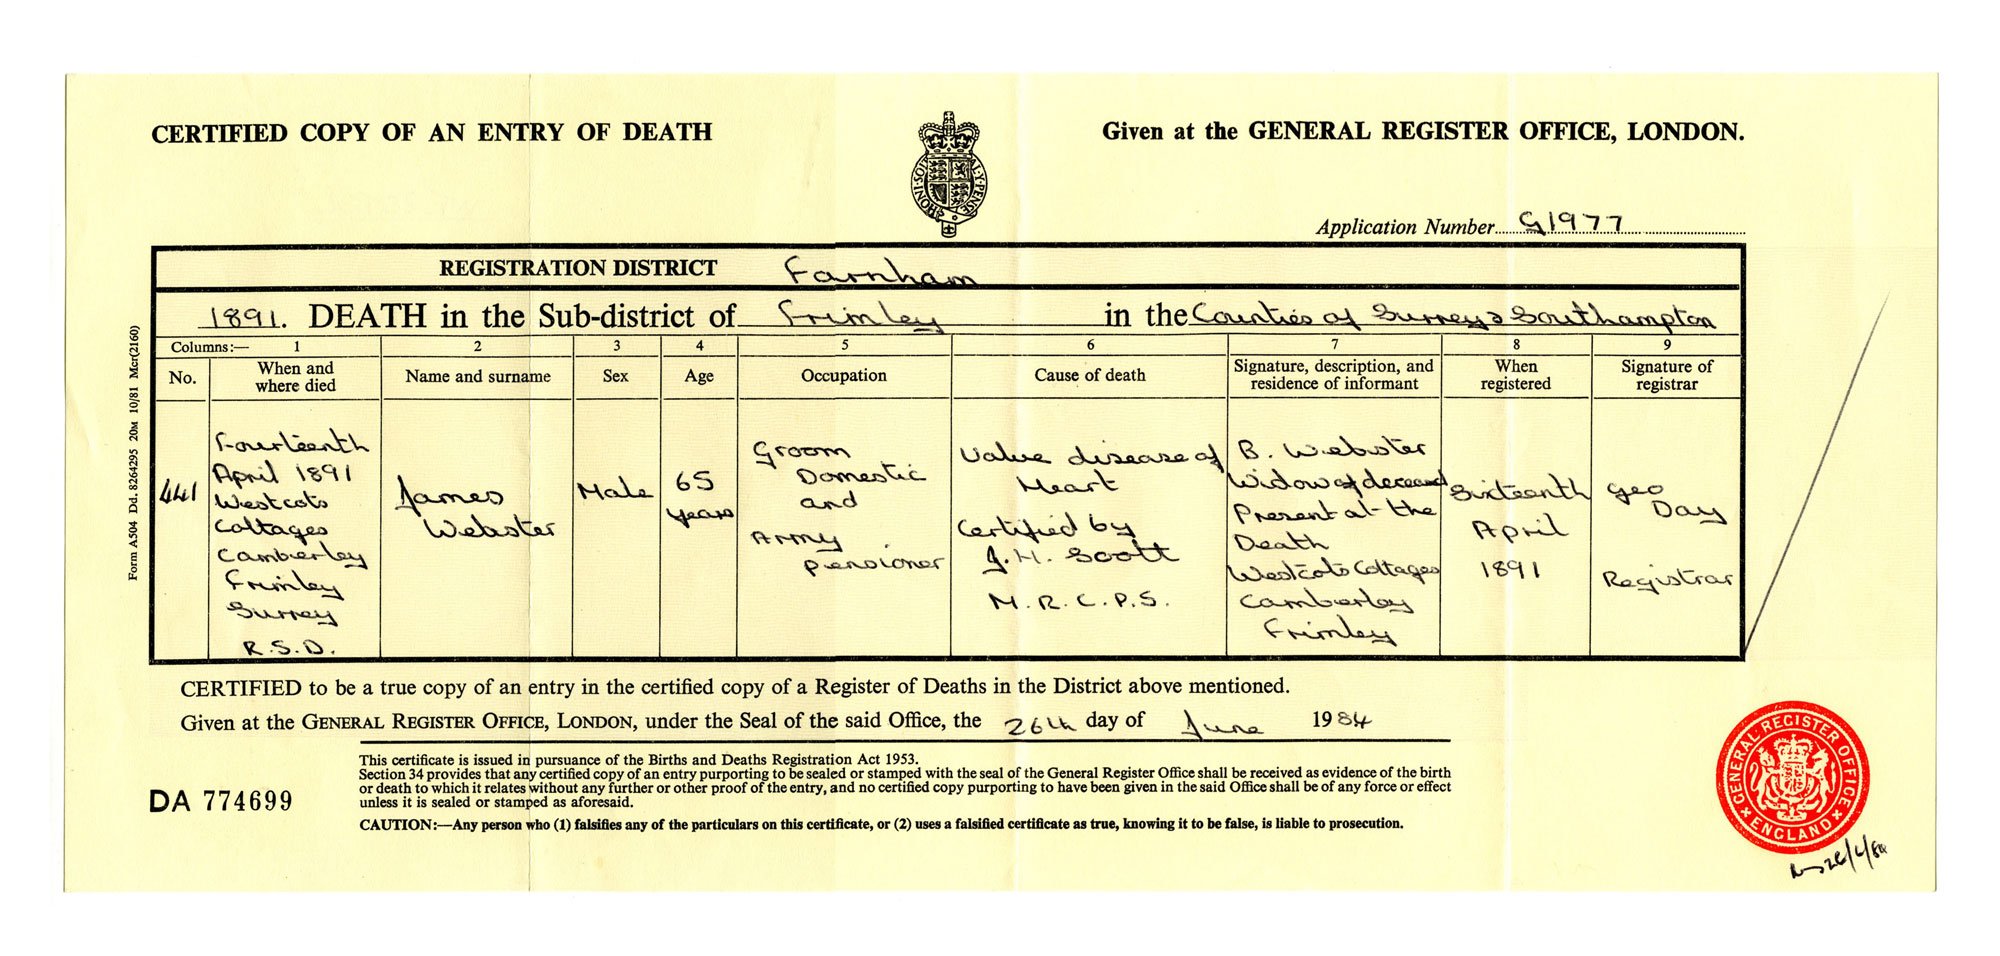 CERTIFIED COPY OF AN ENTRY OF DEATH
Given at the GENERAL REGISTER OFFICE, LONDON.
HONI·SOI
AL·Y·PENCE
Application Number G1977
REGISTRATION DISTRICT Farnham
1891. DEATH in the Sub-district of Frimley in the Counties of Surrey & Southampton
Columns:— 1 2 3 4 5 6 7 8 9
No.
When and
where died
Name and surname
Sex
Age
Occupation
Cause of death
Signature, description, and
residence of informant
When
registered
Signature of
registrar
441
Fourteenth
April 1891
Westcots
Cottages
Camberley
Frimley
Surrey
R.S.D.
James
Webster
Male
65
years
Groom
Domestic
and
Army
pensioner
Valve disease of
Heart
Certified by
J.H. Scott
M.R.C.P.S.
B. Webster
Widow of deceased
Present at the
Death
Westcots Cottages
Camberley
Frimley
Sixteenth
April
1891
Geo
Day
Registrar
CERTIFIED to be a true copy of an entry in the certified copy of a Register of Deaths in the District above mentioned.
Given at the GENERAL REGISTER OFFICE, LONDON, under the Seal of the said Office, the 26th day of June 1984
This certificate is issued in pursuance of the Births and Deaths Registration Act 1953.
Section 34 provides that any certified copy of an entry purporting to be sealed or stamped with the seal of the General Register Office shall be received as evidence of the birth
or death to which it relates without any further or other proof of the entry, and no certified copy purporting to have been given in the said Office shall be of any force or effect
unless it is sealed or stamped as aforesaid.
CAUTION:—Any person who (1) falsifies any of the particulars on this certificate, or (2) uses a falsified certificate as true, knowing it to be false, is liable to prosecution.
DA 774699
Form A504 Dd. 8264295 20M 10/81 Mcr(2160)
GENERAL REGISTER OFFICE
ENGLAND
26/6/84